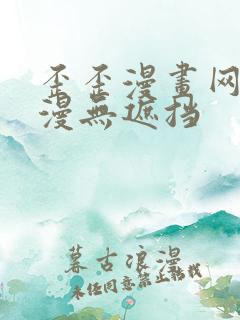 歪歪漫畫网
漫無遮挡
暮古浪漫
未经同意禁止转载